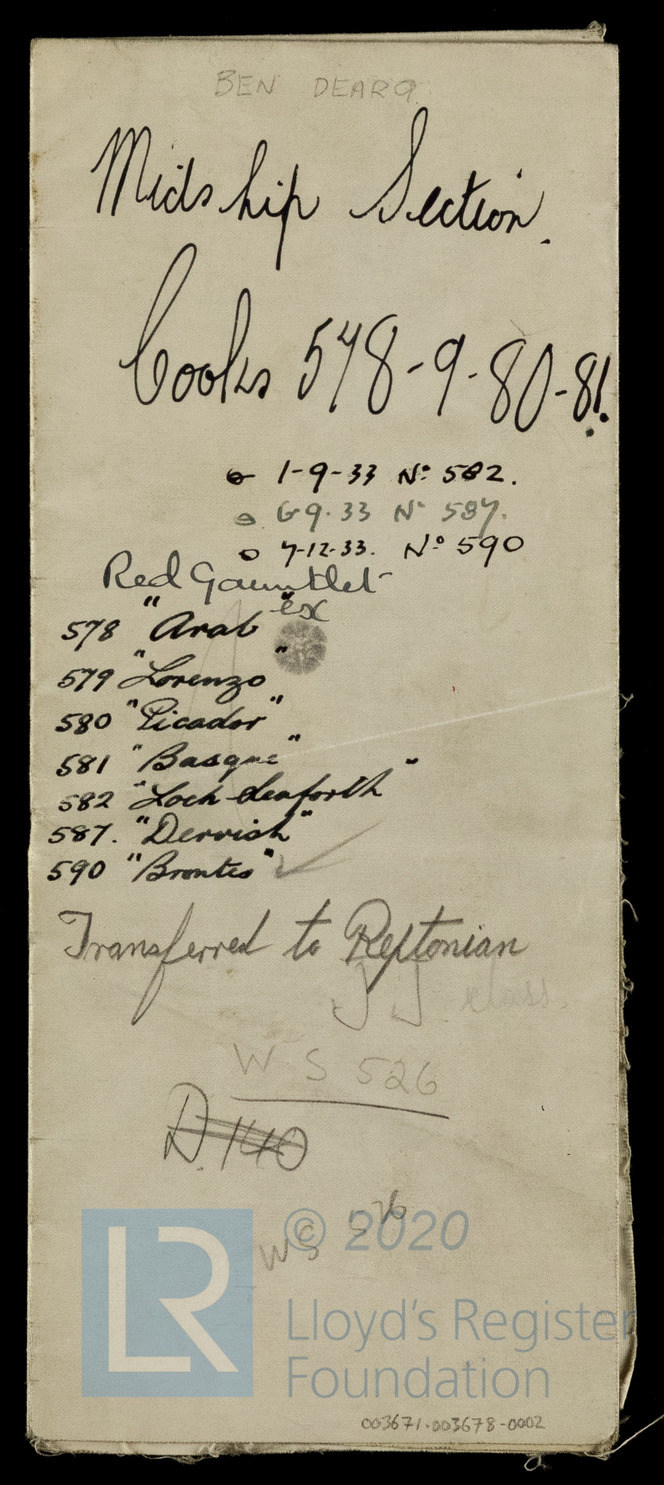 BEN DEARG
Midship Section.
Cooks 578-9-80-81.
1-9-33 No 582.
6-9-33 No 587.
7-12-33. No 590
Red Gauntlet
ex
578 "Arab"
579 "Lorenzo"
580 "Picador"
581 "Basque"
582 "Loch Seaforth"
587. "Dervish"
590 "Brontes"
Transferred to Reptonian
JJ class.
W S 526
D.140
WS 526
© 2020
LR
Lloyd's Register
Foundation
003671-003678-0002